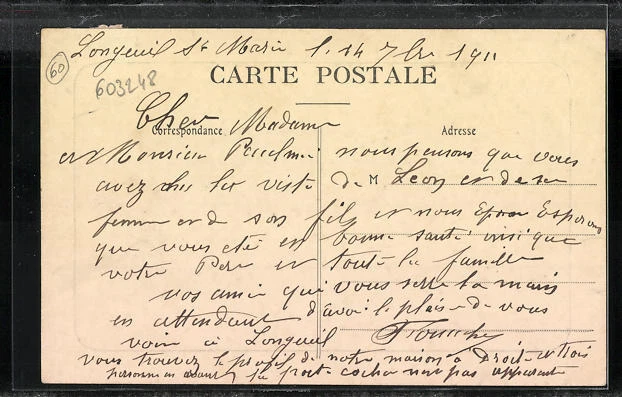 60
Longeuil Ste Marie l. 14 7bre 1911
603248
CARTE POSTALE
Correspondance
Adresse
Cher Madame
et Monsieur nous pensons que vous
avez la viste de M Leon et de sa
femme et de son fils et nous Esperons
que vous ete en bonne santé insi que
votre Pere et toute la famille
vos amis qui vous serre la main
en attendant d'avoir le plésir de vous
voir a Longeuil
vous trouvez le profil de notre maison a Droit et trois
personne la porte cocher net pas apparente